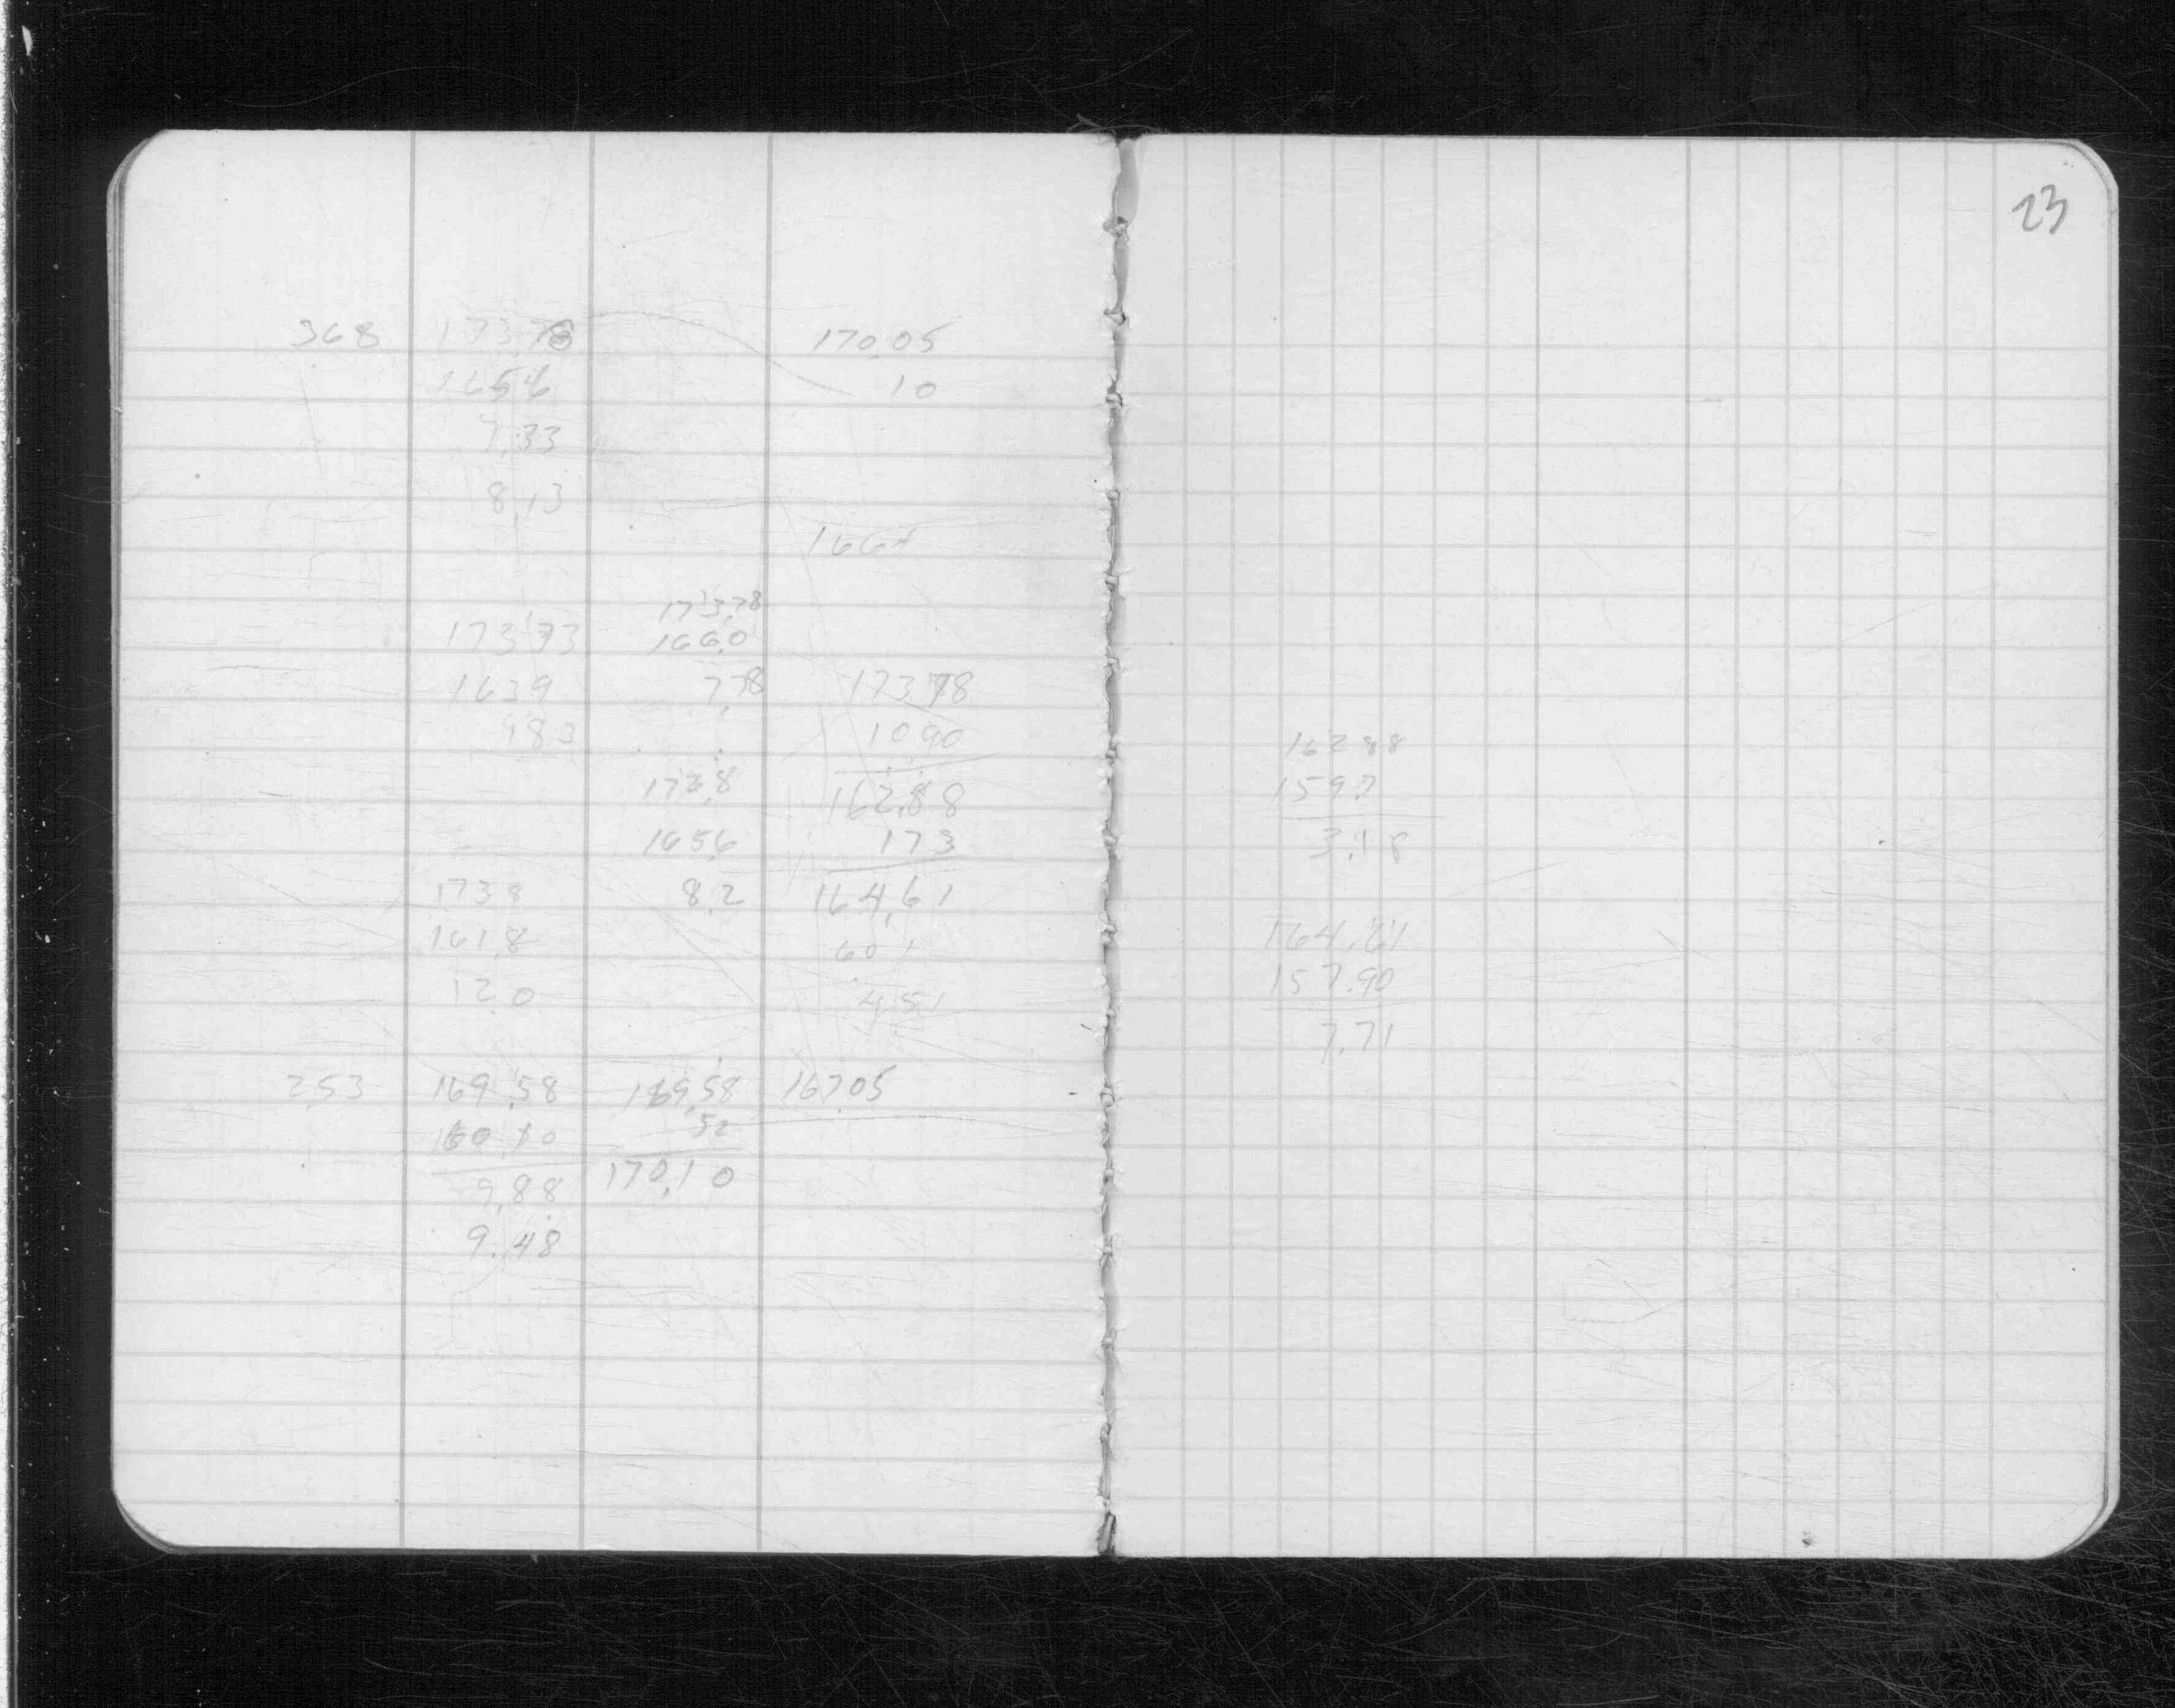 23
368 173.78 170.05
1656 10
7.33
8.13
166
173.78
173.73 166.0
1639 7.78 173.78
983 10.90
173.8 162.88
1656 173
1738 8.2 164.61
161.8 60 1
12 0 4.51
2.53 169.58 169.58 167.05
160.10 52
9.88 170.10
9.48
162 88
159 7
3.18
164.61
157.90
7.71